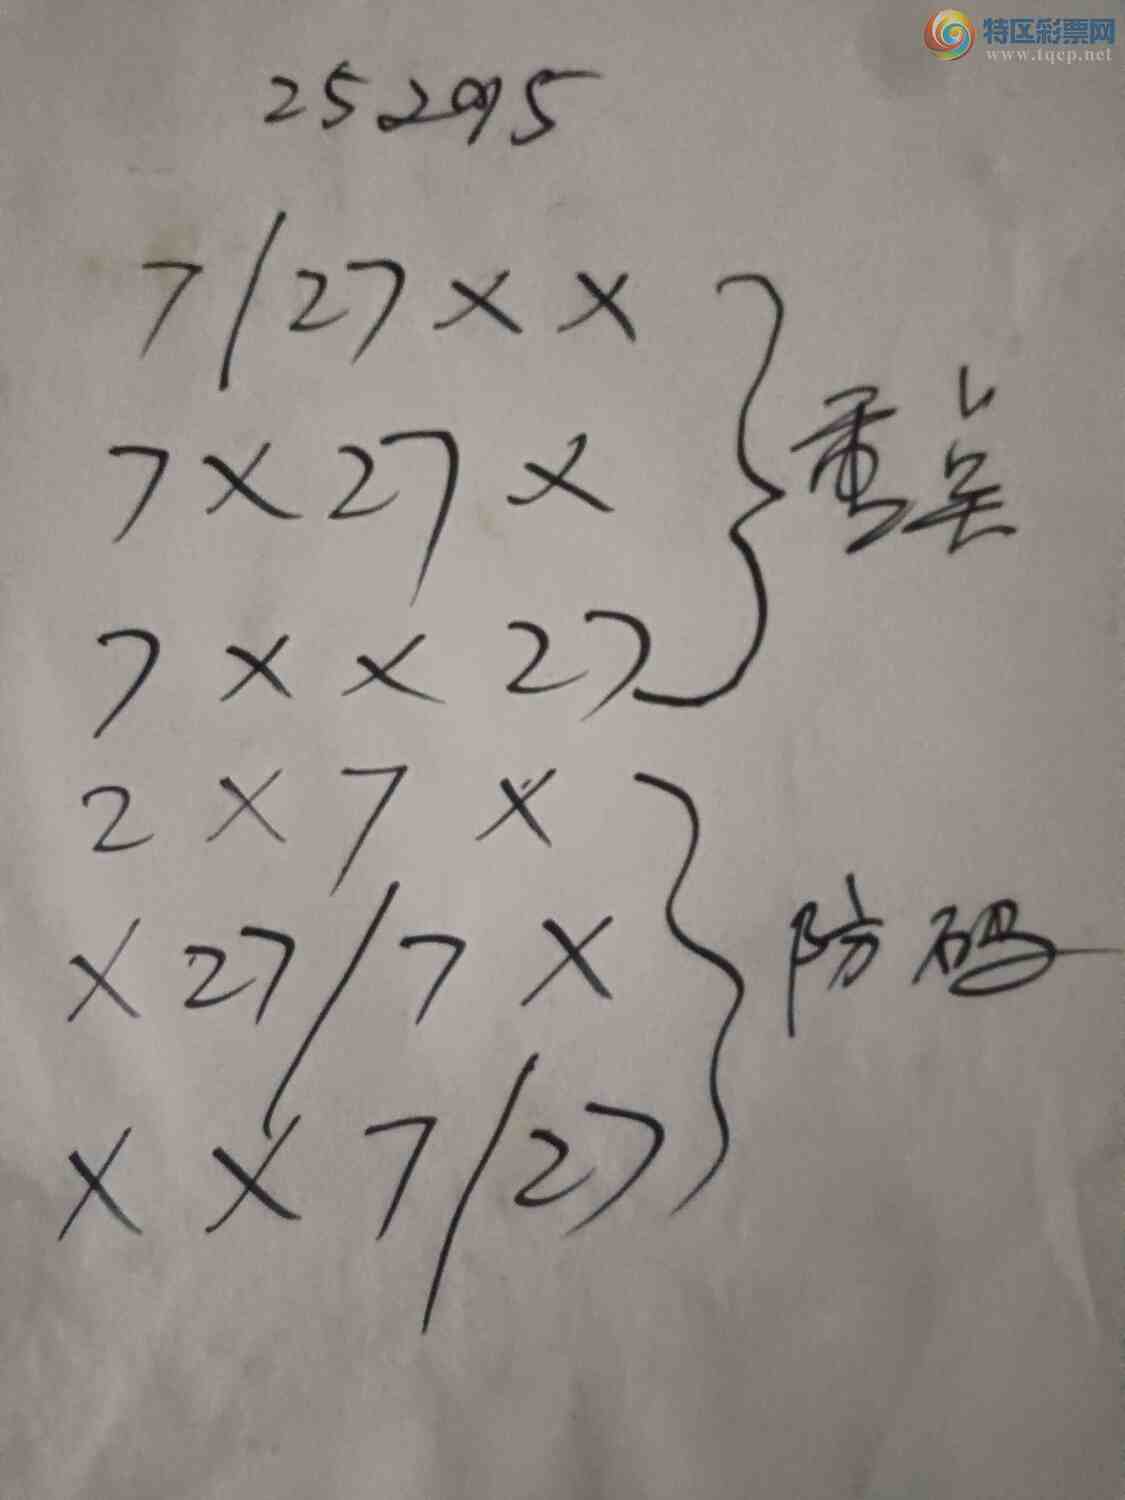 特区彩票网
www.tqcp.net
252915
7/27××
7×27×
7××27
重点
2×7×
×27/7×
××7/27
防码